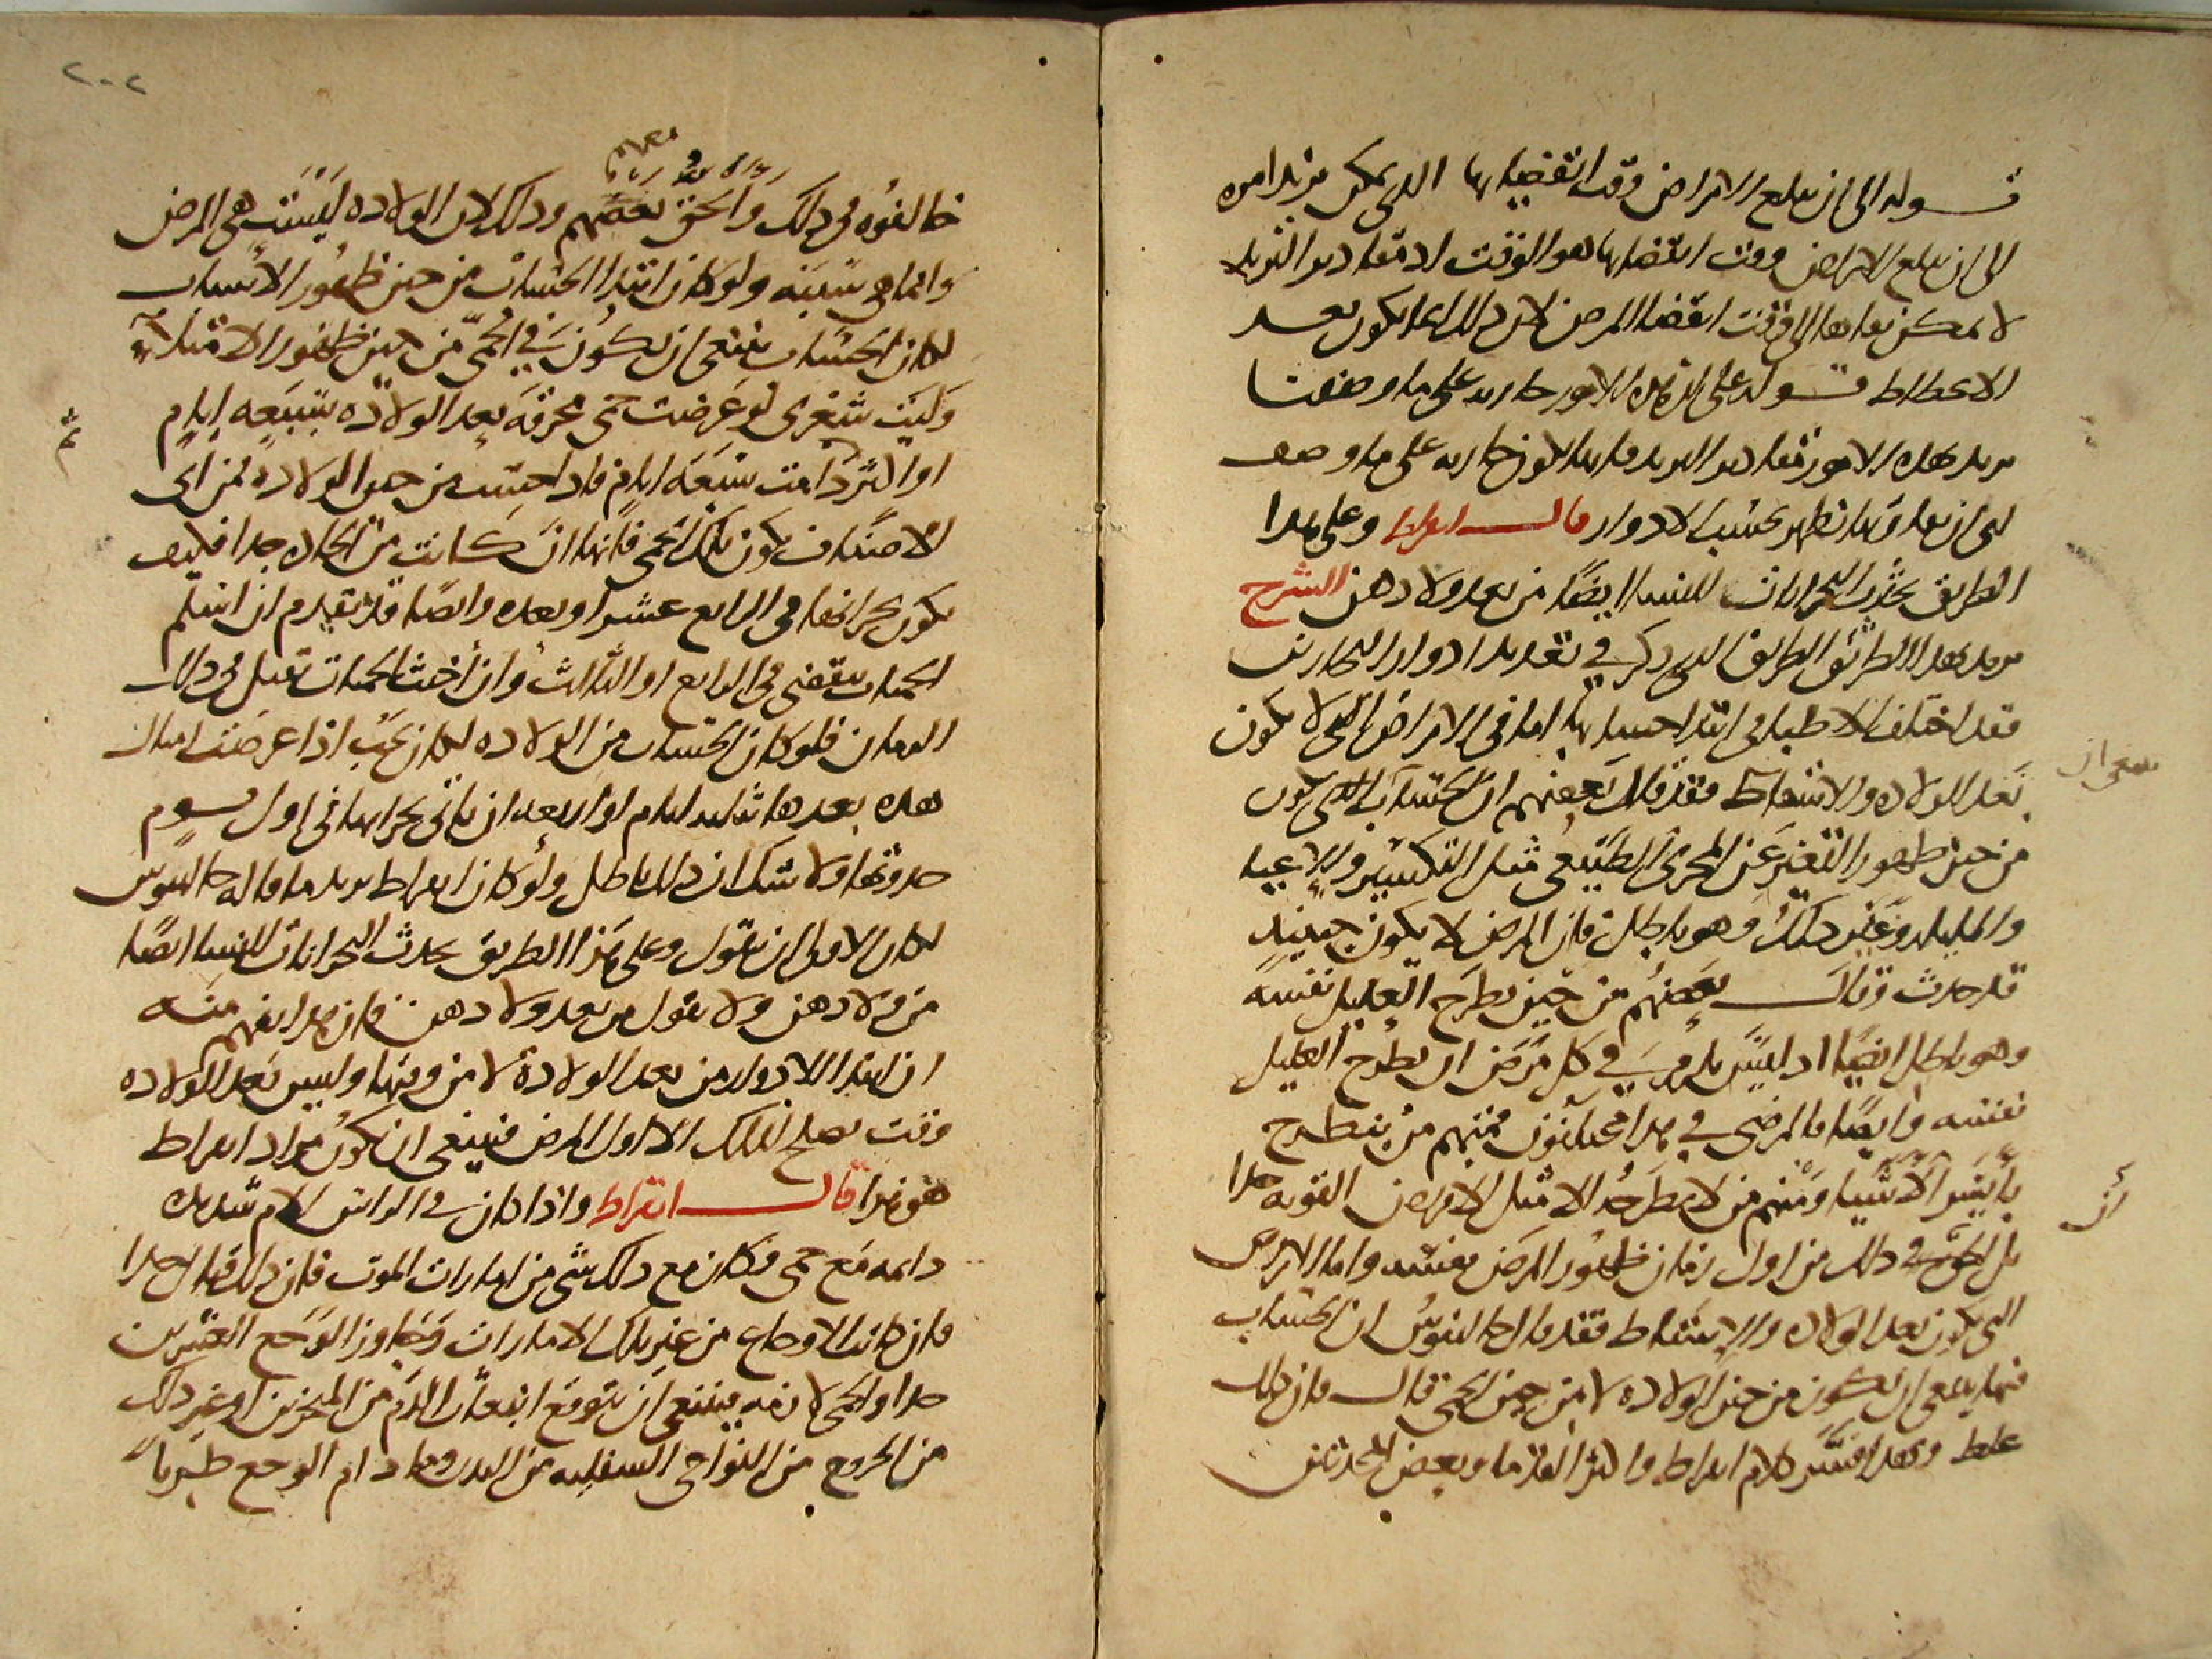 قوله الى ان يبلغ الامراض وقت انقضايها الذي يمكن يريد امره
الى ان يبلغ الامراض وقت انقضايها هو الوقت اذ مقادير التزيد
لا يمكن بقاوها الى وقت انقضا المرض لان ذلك انما يكون بعد
الانحطاط قوله على ان هذه الامور جاريه على ما وصفنا
يريد بهذه الامور مقادير التزيد فانها تكون جاريه على ما وصف
اى ان مقاديرها تظهر بحسب الادوار قال ابقراط وعلى هذا
الطريق يحدث البحرانات للنسا ايضًا من بعد ولادهن الشرح
يريد بهذا الطريق الطريق الذي ذكر في تقدير ادوار البحارين
فقد اختلف الاطبا في ابتدا حسابها اما في الامراض التي لا يكون
بعد الولاده والاسقاط فقد قال بعضهم ان الحساب الذي يكون
من حين ظهور التغير عن المجرى الطبيعي مثل التكسير والاعيا
والمليله وغير ذلك وهو باطل فان المرض لا يكون حينيذ
قد حدث وقال بعضهم من حين يطرح العليل نفسه
وهو باطل ايضًا اذ ليس يلزم في كل مرض ان يطرح العليل
نفسه وايضًا فالمرضى في هذا مختلفون فمنهم من ينطرح
بأيسر الاشيا ومنهم من لا يطرحه الا مثل الامراض القويه جدا
بل الحق في ذلك من اول زمان ظهور المرض بنفسه واما الامراض
التي يكون بعد الولاده والاسقاط فقد قال جالينوس ان الحساب
فيها ينبغى ان يكون من حين الولاده لا من حين الحمى قال فان ذلك
غلط وبهذا فسر كلام ابقراط واكثر القدما وبعض المحدثين
ينبغى ان
أن
٢٠٢
خالفوه في ذلك والحق بعضهم وذلك لان الولاده ليست هي المرض
وانما هي سببه ولو كان ابتدا الحساب من حين ظهور الاسباب
لكان الحساب ينبغى ان يكون في الحمى من حين ظهور الامتلا
وليت شعرى لو عرضت حمى محرقه بعد الولاده بسبعه ايام
او اكثر دامت سبعه ايام فاذا حسبت من حين الولاده من اى
الاصناف يكون تلك الحمى فانها ان كانت من الحاده جدا فكيف
يكون بحرانها في الرابع عشر او بعده وايضًا قد تقدم ان اسلم
الحميات ينقضى في الرابع او الثالث وان أخبث الحميات تقتل في ذلك
الزمان فلو كان الحساب من الولاده لكان يجب اذا عرضت امثال
هذه بعدها بثلثه ايام او اربعه ان ياتى بحرانها في اول يوم
حدوثها ولا شك ان ذلك باطل ولو كان ابقراط يريد ما قاله جالينوس
لكان الاولى ان يقول وعلى هذا الطريق يحدث البحرانات للنسا ايضًا
من ولادهن ولا يقول من بعد ولادهن فان هذا يفهم منه
ان ابتدا الادوار من بعد الولادة لا من وقتها وليس بعد الولاده
وقت يصلح لذلك الا اول المرض فينبغى ان يكون مراد ابقراط
هو هذا قال ابقراط واذا كان في الراس الام شديده
دايمه مع حمى فكان مع ذلك شى من امارات الموت فان ذلك قتال جدا
فان كانت الاوجاع من غير تلك الامارات وتجاوز الوجع العشرين
يوما والحمى لازمه فينبغى ان يتوقع انبعاث الدم من المنخرين او غير ذلك
من الخروج من النواحى السفليه من البدن وما دام الوجع طريًا